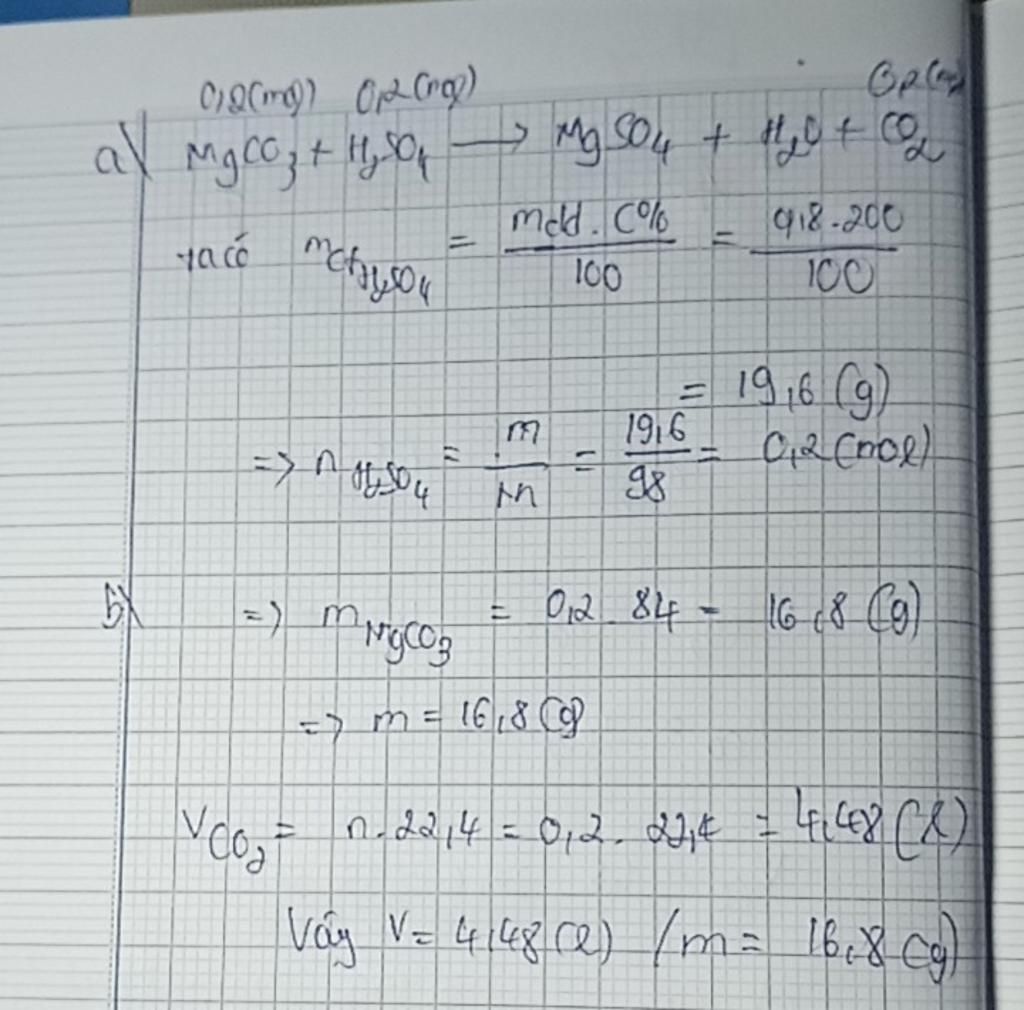 0,2(mol) 0,2(mol) 0,2(mol)
a) MgCO3 + H2SO4 → MgSO4 + H2O + CO2
ta có mCt H2SO4 = mdd . C% / 100 = 9,8 . 200 / 100
= 19,6 (g)
=> n H2SO4 = m / M = 19,6 / 98 = 0,2 (mol)
b) => m MgCO3 = 0,2 . 84 = 16,8 (g)
=> m = 16,8 (g)
VCO2 = n . 22,4 = 0,2 . 22,4 = 4,48 (l)
Vậy V = 4,48 (l) / m = 16,8 (g)